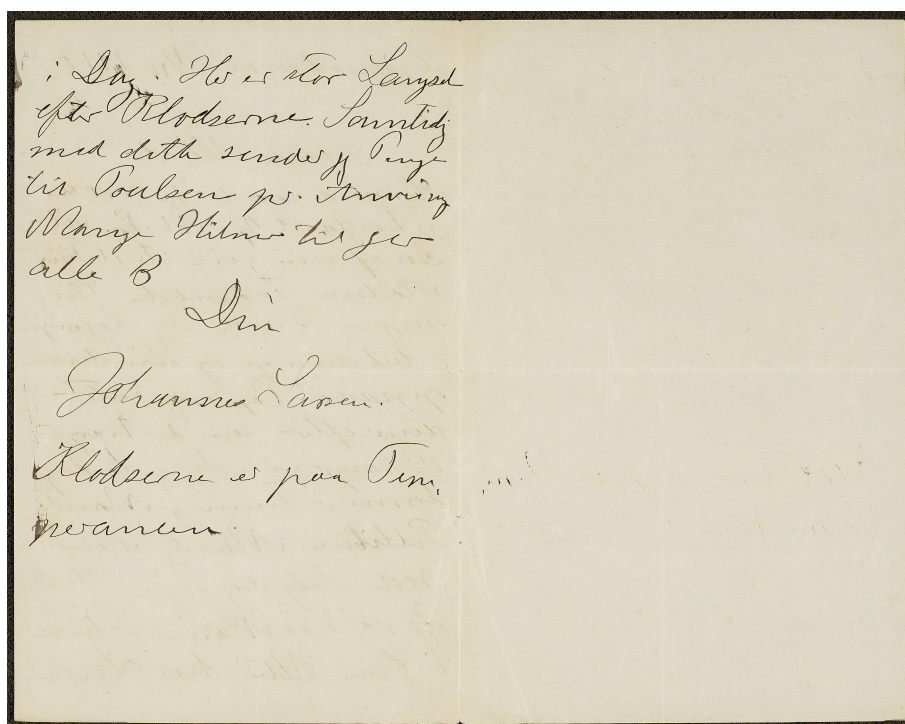 i Dag. Her er stor Længsel
efter Klodserne. Samtidig
med dette sender jeg Penge
til Poulsen pr. Anvisning
Mange Hilsner til jer
alle B
Din
Johannes Larsen.
Klodserne er paa Tem,
peranten